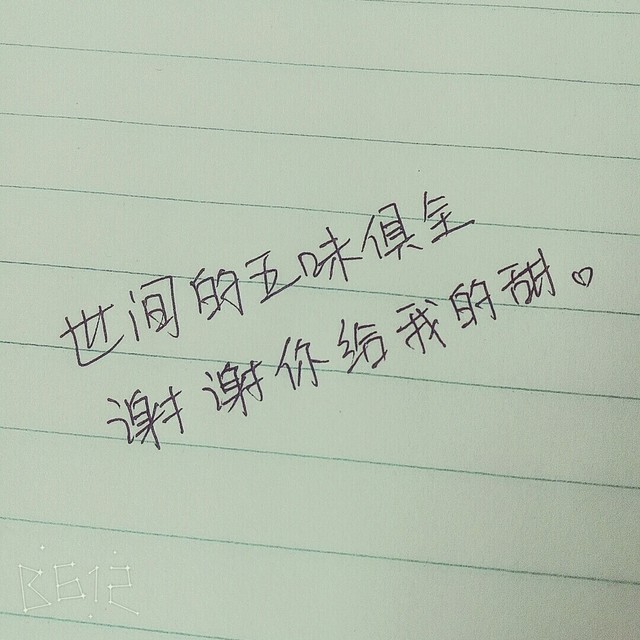 世间的五味俱全
谢谢你给我的甜♡
B612